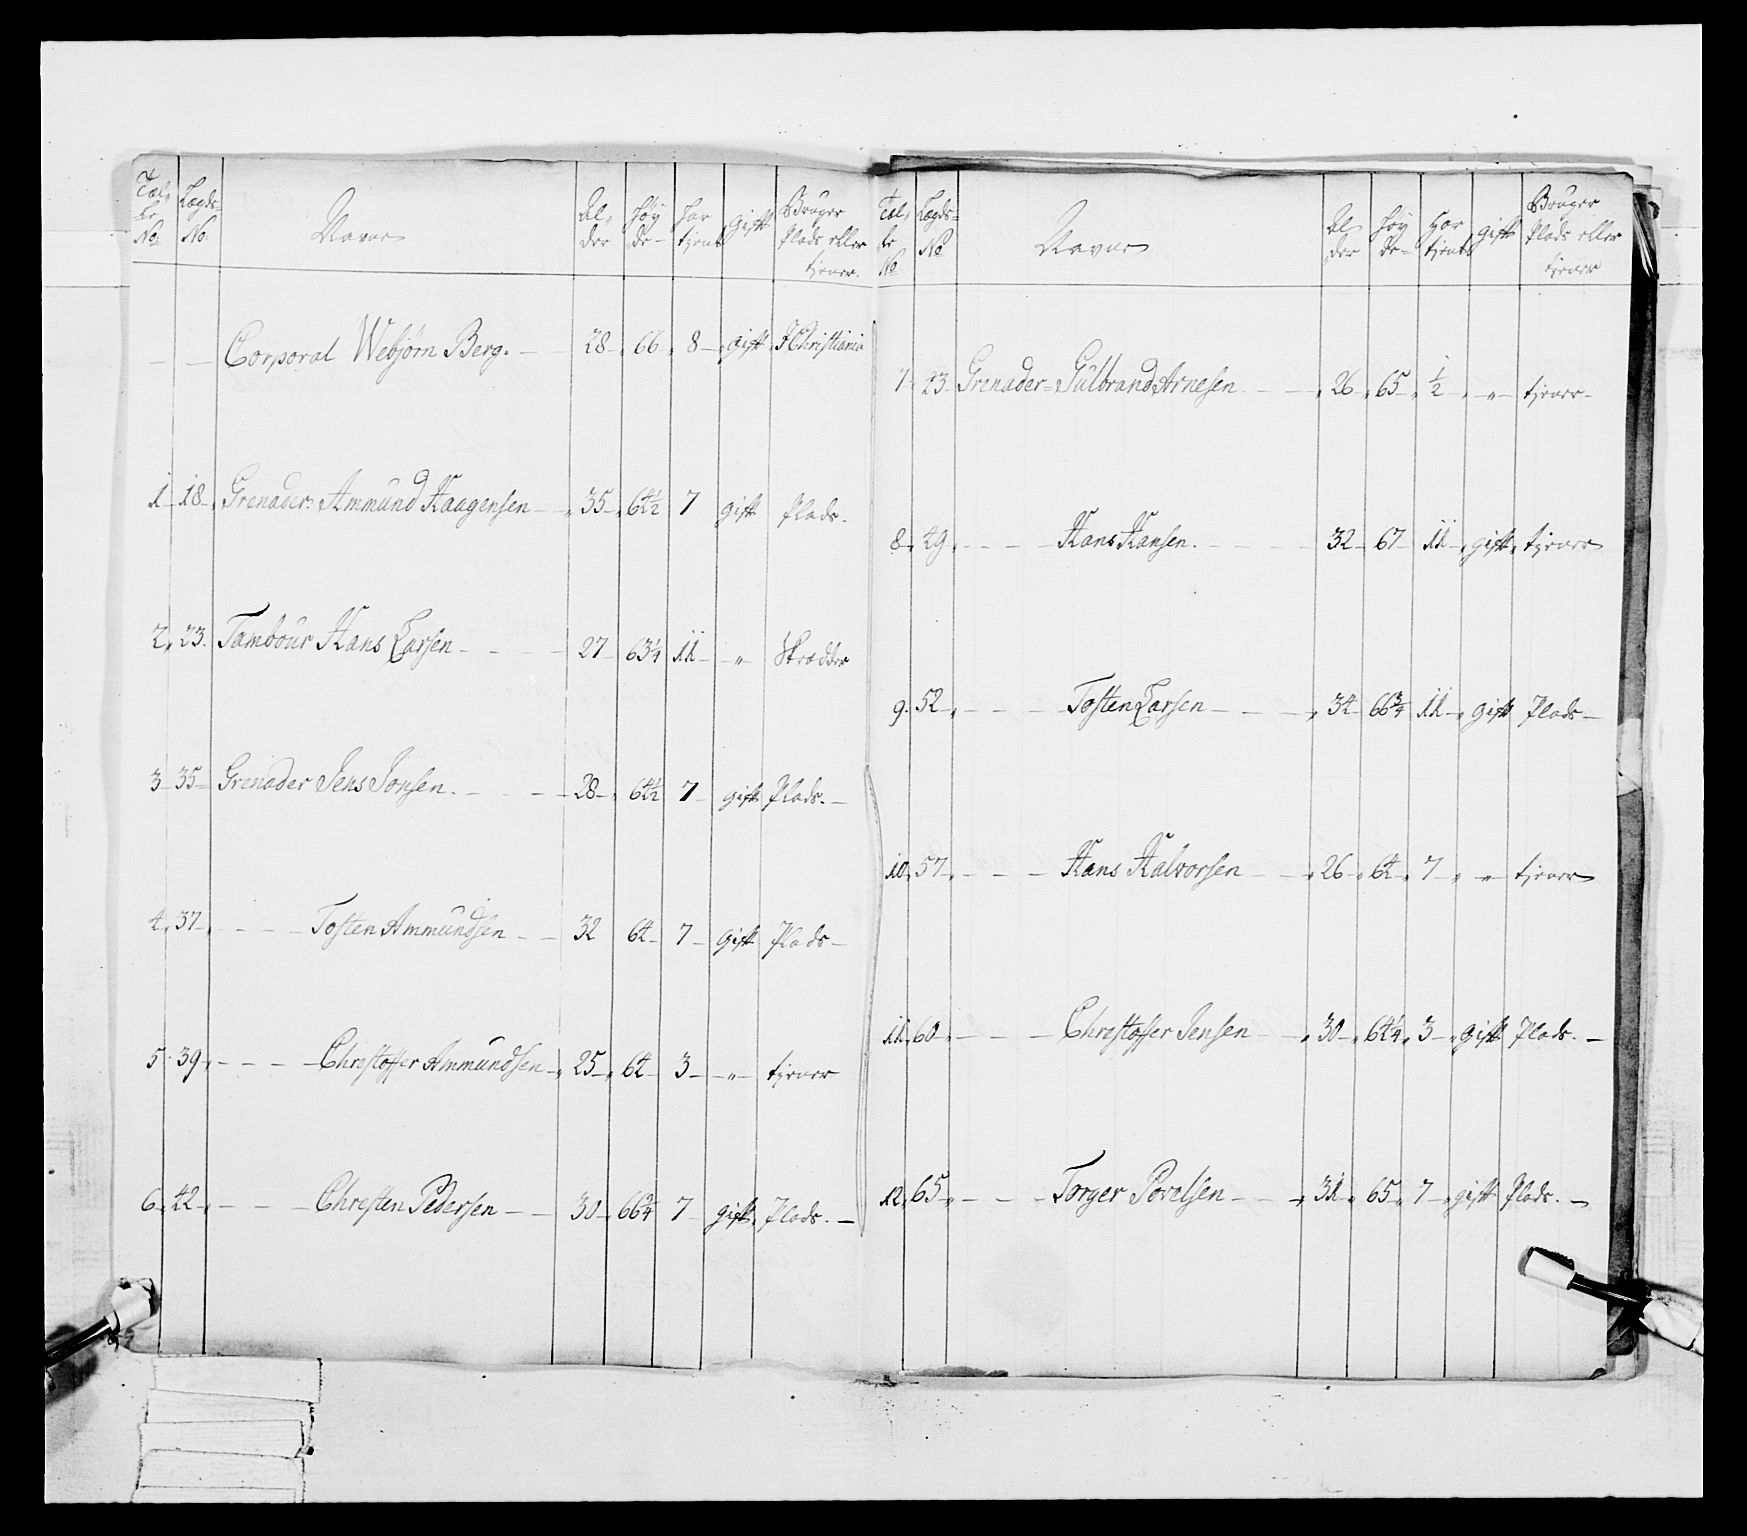 Tæl, Lægds= Navne Al, Høy Har gift Bruger
Ke No. der de= tjent Plads eller
No. tjener.
— — Corporal Webjørn Berg. — 28 — 66 8 — gift I Christiania
1 — 18 — Grenader: Ammund Haagensen — 35 — 64½ 7 gift Plads.
2 23. Tambour Hans Larsen — 27 — 63¼ 11 — " — Skrædder
3 — 35 — Grenader Jens Jonsen. — 28 — 64½ 7 — gift Plads. —
4 37 — — — — Tosten Ammundsen — 32 64 — 7 — gift Plads —
5 39 — — — — Christoffer Ammundsen — 25 — 64 3 — " — tjener
6 42 — — — — Christen Pedersen — 30 — 66¾ 7 — gift Plads. —
Tæl, Lægds= Navne Al der Høy de= Har tjent gift Bruger
Ke No Plads eller
No tjener
7 43 Grenader= Gulbrand Arnesen — 26 — 65 — ½ — " — tjener —
8 49 — — — Hans Hansen. — 32 — 67 11 — gift tjener
9. 52 — — — Tosten Larsen — 34 66¾ 11 — gift Plads —
10 57 — — — Hans Halvorsen — 26 — 64 7 — " — tjener
11 60 — — — Christoffer Jensen — 30 — 64¼ 3 — gift Plads. —
12 65 — — — Torger Povelsen — 31 — 65 7 — gift Plads. —